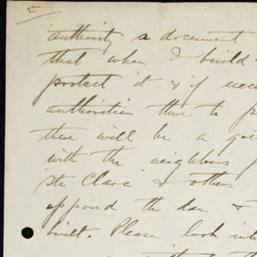 authority a document
that when I build
protect it & if nece
authorities there to p
there will be a
with the neighbors
Ste Clara & others
opposed the dam &
built. Please look into